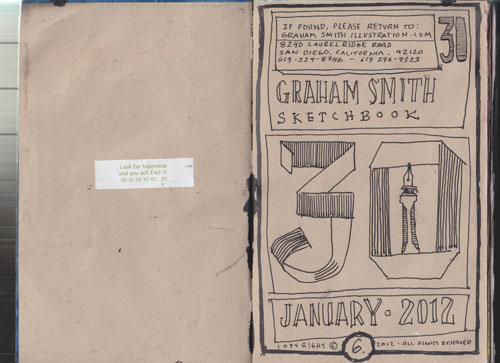 Look for happiness
and you will find it.
IF FOUND, PLEASE RETURN TO:
GRAHAM SMITH ILLUSTRATION.COM
8290 LAURELRIDGE ROAD
SAN DIEGO, CALIFORNIA. 92120
30
GRAHAM SMITH
SKETCHBOOK
30
JANUARY · 2012
COPYRIGHT © 6. 2012 · ALL RIGHTS RESERVED